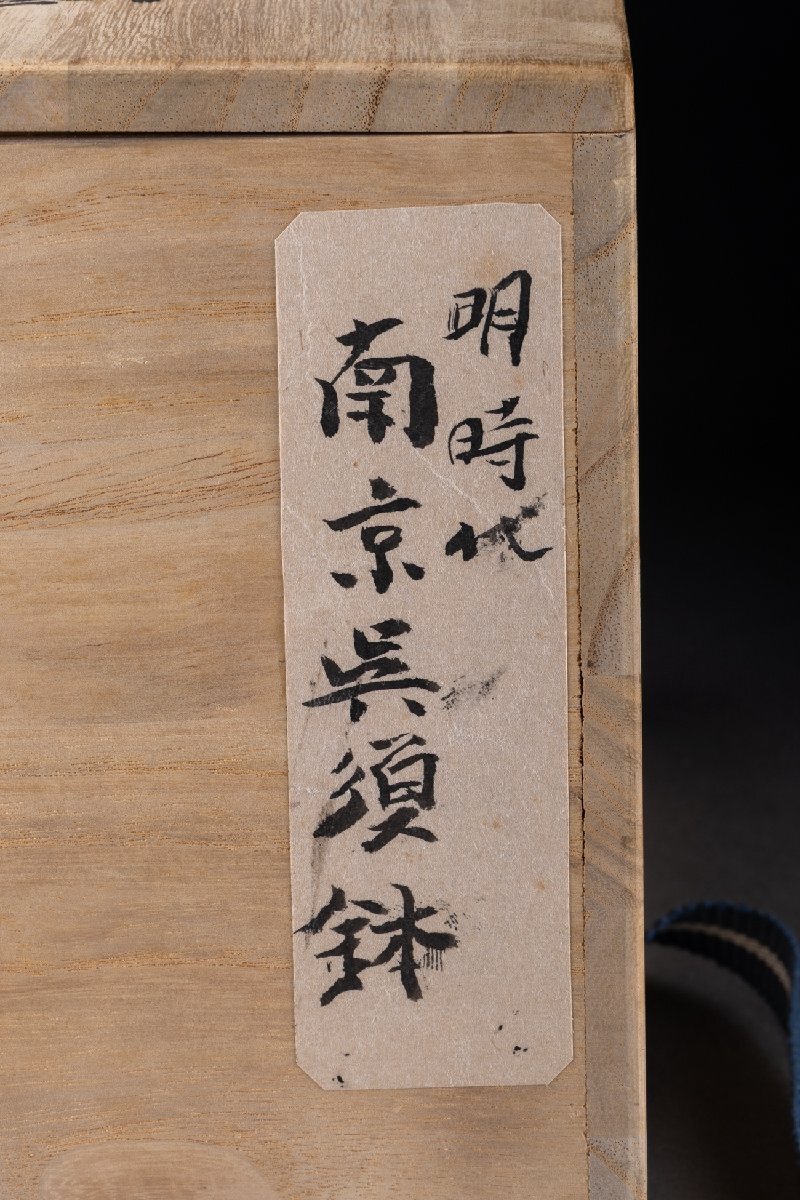 明時代
南京呉須鉢